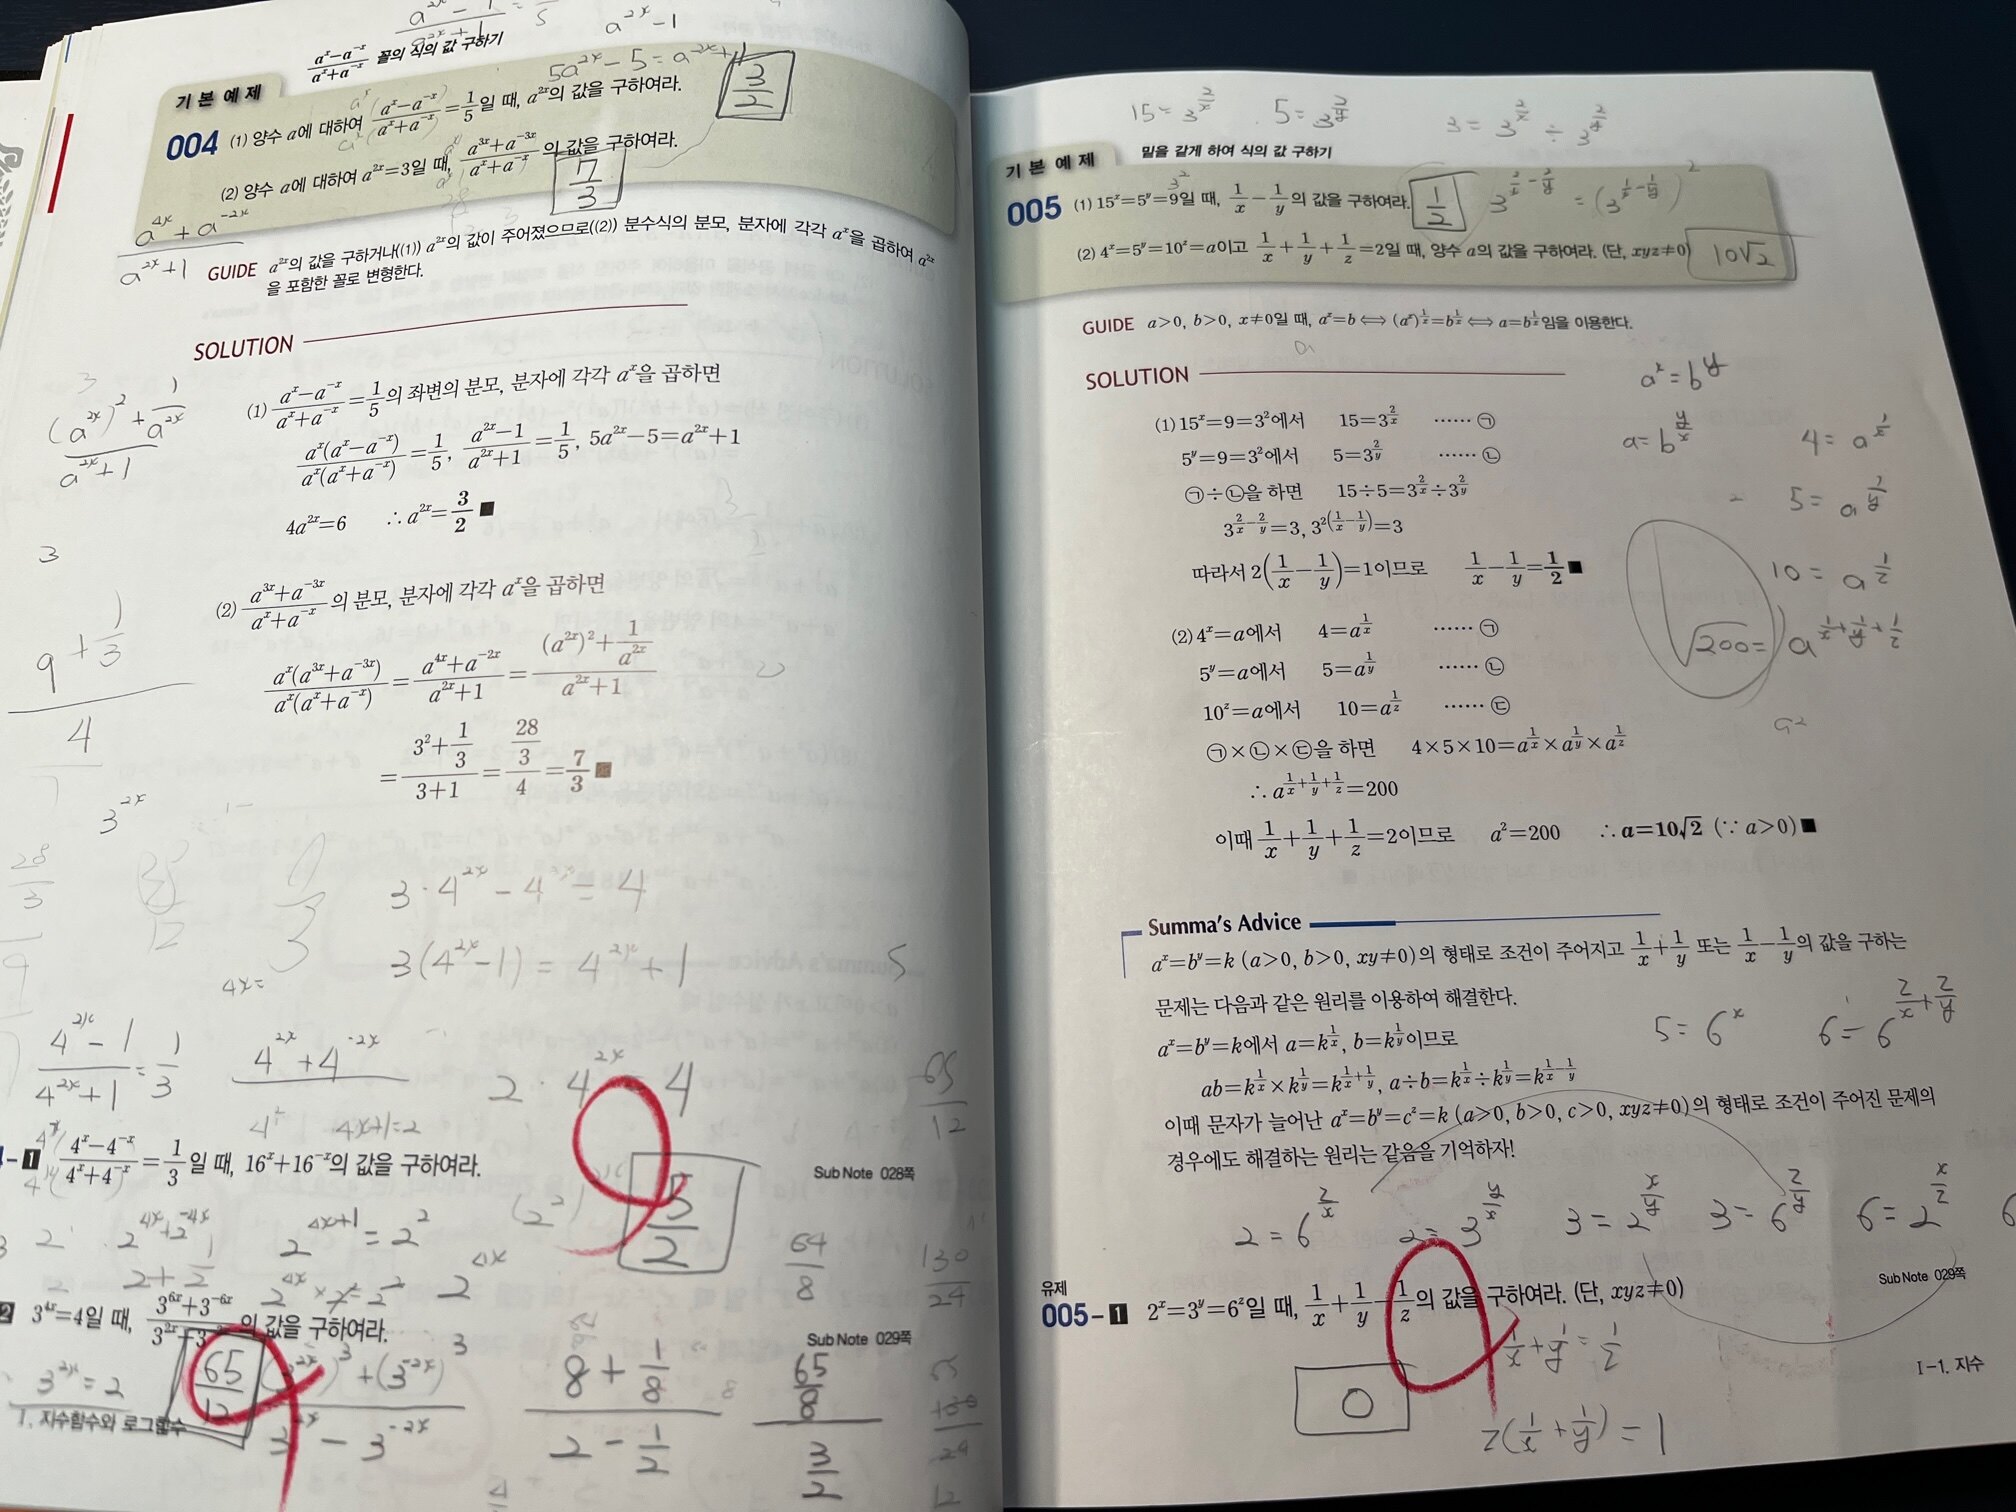 a^{2x}-1
\frac{a^x-a^{-x}}{a^x+a^{-x}} 꼴의 식의 값 구하기
5a^{2x}-5=a^{2x}+1
기본예제
004 (1) 양수 a에 대하여 \frac{a^x-a^{-x}}{a^x+a^{-x}}=\frac{1}{5}일 때, a^{2x}의 값을 구하여라. \frac{3}{2}
(2) 양수 a에 대하여 a^{2x}=3일 때, \frac{a^{3x}+a^{-3x}}{a^x+a^{-x}}의 값을 구하여라. \frac{7}{3}
\frac{a^{4x}+a^{-2x}}{a^{2x}+1}
GUIDE a^{2x}의 값을 구하거나((1)) a^{2x}의 값이 주어졌으므로((2)) 분수식의 분모, 분자에 각각 a^x을 곱하여 a^{2x}
을 포함한 꼴로 변형한다.
SOLUTION
(1) \frac{a^x-a^{-x}}{a^x+a^{-x}}=\frac{1}{5}의 좌변의 분모, 분자에 각각 a^x을 곱하면
\frac{(a^{2x})^2+\frac{1}{a^{2x}}}{a^{2x}+1}
\frac{a^x(a^x-a^{-x})}{a^x(a^x+a^{-x})}=\frac{1}{5}, \frac{a^{2x}-1}{a^{2x}+1}=\frac{1}{5}, 5a^{2x}-5=a^{2x}+1
4a^{2x}=6 ∴ a^{2x}=\frac{3}{2} ■
3
(2) \frac{a^{3x}+a^{-3x}}{a^x+a^{-x}}의 분모, 분자에 각각 a^x을 곱하면
\frac{9+\frac{1}{3}}{4}
\frac{a^x(a^{3x}+a^{-3x})}{a^x(a^x+a^{-x})}=\frac{a^{4x}+a^{-2x}}{a^{2x}+1}=\frac{(a^{2x})^2+\frac{1}{a^{2x}}}{a^{2x}+1}
=\frac{3^2+\frac{1}{3}}{3+1}=\frac{\frac{28}{3}}{4}=\frac{7}{3} ■
3^{2x}
\frac{28}{3}
3·4^{2x}-4^{2x}=4
3(4^{2x}-1)=4^{2x}+1
4x=
5
\frac{4^{2x}-1}{4^{2x}+1}=\frac{1}{3}
4^{2x}+4^{-2x}
2·4^{2x}=4
\frac{65}{12}
4x+1=2
-1 \frac{4^x-4^{-x}}{4^x+4^{-x}}=\frac{1}{3}일 때, 16^x+16^{-x}의 값을 구하여라.
Sub Note 028쪽
\frac{5}{2}
2^{4x}+2^{-4x}
2^{4x+1}=2^2
(2^2)
2+\frac{1}{2}
2^{4x}×2=2^2
2^{4x}
\frac{64}{8}
\frac{130}{24}
2 3^{4x}=4일 때, \frac{3^{6x}+3^{-6x}}{3^{2x}-3^{-2x}}의 값을 구하여라.
Sub Note 029쪽
3^{2x}=2
\frac{65}{12}
\frac{(3^{2x})^3+(3^{-2x})^3}{3^{2x}-3^{-2x}}
\frac{8+\frac{1}{8}}{2-\frac{1}{2}}
\frac{\frac{65}{8}}{\frac{3}{2}}
I. 지수함수와 로그함수
15=3^{\frac{2}{x}} 5=3^{\frac{2}{y}} 3=3^{\frac{2}{x}}÷3^{\frac{2}{y}}
밑을 같게 하여 식의 값 구하기
기본예제
005 (1) 15^x=5^y=9일 때, \frac{1}{x}-\frac{1}{y}의 값을 구하여라. \frac{1}{2}
3^{\frac{2}{x}-\frac{2}{y}}=(3^{\frac{1}{x}-\frac{1}{y}})^2
(2) 4^x=5^y=10^z=a이고 \frac{1}{x}+\frac{1}{y}+\frac{1}{z}=2일 때, 양수 a의 값을 구하여라. (단, xyz≠0) 10√2
GUIDE a>0, b>0, x≠0일 때, a^x=b ⟺ (a^x)^{\frac{1}{x}}=b^{\frac{1}{x}} ⟺ a=b^{\frac{1}{x}}임을 이용한다.
SOLUTION
a^x=b^y
(1) 15^x=9=3^2에서 15=3^{\frac{2}{x}} ······ ㉠
a=b^{\frac{y}{x}}
4=a^{\frac{1}{x}}
5^y=9=3^2에서 5=3^{\frac{2}{y}} ······ ㉡
㉠÷㉡을 하면 15÷5=3^{\frac{2}{x}}÷3^{\frac{2}{y}}
5=a^{\frac{1}{y}}
3^{\frac{2}{x}-\frac{2}{y}}=3, 3^{2(\frac{1}{x}-\frac{1}{y})}=3
따라서 2(\frac{1}{x}-\frac{1}{y})=1이므로 \frac{1}{x}-\frac{1}{y}=\frac{1}{2} ■
10=a^{\frac{1}{z}}
(2) 4^x=a에서 4=a^{\frac{1}{x}} ······ ㉠
√200=a^{\frac{1}{x}+\frac{1}{y}+\frac{1}{z}}
5^y=a에서 5=a^{\frac{1}{y}} ······ ㉡
10^z=a에서 10=a^{\frac{1}{z}} ······ ㉢
a^2
㉠×㉡×㉢을 하면 4×5×10=a^{\frac{1}{x}}×a^{\frac{1}{y}}×a^{\frac{1}{z}}
∴ a^{\frac{1}{x}+\frac{1}{y}+\frac{1}{z}}=200
이때 \frac{1}{x}+\frac{1}{y}+\frac{1}{z}=2이므로 a^2=200 ∴ a=10√2 (∵ a>0) ■
Summa's Advice
a^x=b^y=k (a>0, b>0, xy≠0)의 형태로 조건이 주어지고 \frac{1}{x}+\frac{1}{y} 또는 \frac{1}{x}-\frac{1}{y}의 값을 구하는
문제는 다음과 같은 원리를 이용하여 해결한다.
5=6^x 6=6^{\frac{2}{x}+\frac{2}{y}}
a^x=b^y=k에서 a=k^{\frac{1}{x}}, b=k^{\frac{1}{y}}이므로
ab=k^{\frac{1}{x}}×k^{\frac{1}{y}}=k^{\frac{1}{x}+\frac{1}{y}}, a÷b=k^{\frac{1}{x}}÷k^{\frac{1}{y}}=k^{\frac{1}{x}-\frac{1}{y}}
이때 문자가 늘어난 a^x=b^y=c^z=k (a>0, b>0, c>0, xyz≠0)의 형태로 조건이 주어진 문제의
경우에도 해결하는 원리는 같음을 기억하자!
2=6^{\frac{z}{x}} 2=3^{\frac{y}{x}} 3=2^{\frac{x}{y}} 3=6^{\frac{z}{y}} 6=2^{\frac{x}{z}} 6
유제
005-1 2^x=3^y=6^z일 때, \frac{1}{x}+\frac{1}{y}-\frac{1}{z}의 값을 구하여라. (단, xyz≠0)
Sub Note 029쪽
\frac{1}{x}+\frac{1}{y}=\frac{1}{z}
0
z(\frac{1}{x}+\frac{1}{y})=1
I-1. 지수